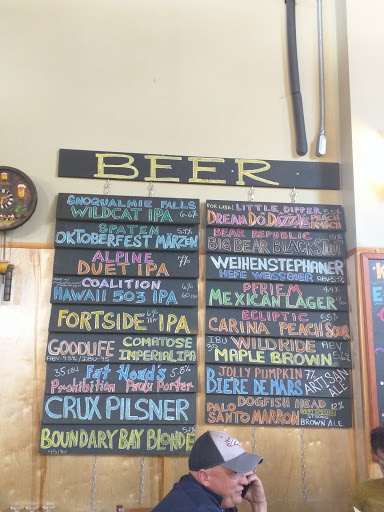 BEER
SNOQUALMIE FALLS
WILDCAT IPA
SPATEN
OKTOBERFEST MÄRZEN
ALPINE
DUET IPA
COALITION
HAWAII 503 IPA
FORTSIDE IPA
GOODLIFE COMATOSE
IMPERIAL IPA
Fat Head's
Prohibition Porter
CRUX PILSNER
BOUNDARY BAY BLONDE
LITTLE DIPPER
DREAM DO DIZZLE
BEAR REPUBLIC
BIG BEAR BLACK STOUT
WEIHENSTEPHANER
HEFE WEISSBIER
PFRIEM
MEXICAN LAGER
ECLIPTIC
CARINA PEACH SOUR
IBU WILD RIDE
MAPLE BROWN
JOLLY PUMPKIN
BIERE DE MARS
ARTISAN
ALE
DOGFISH HEAD 12%
PALO
SANTO MARRON
BROWN ALE